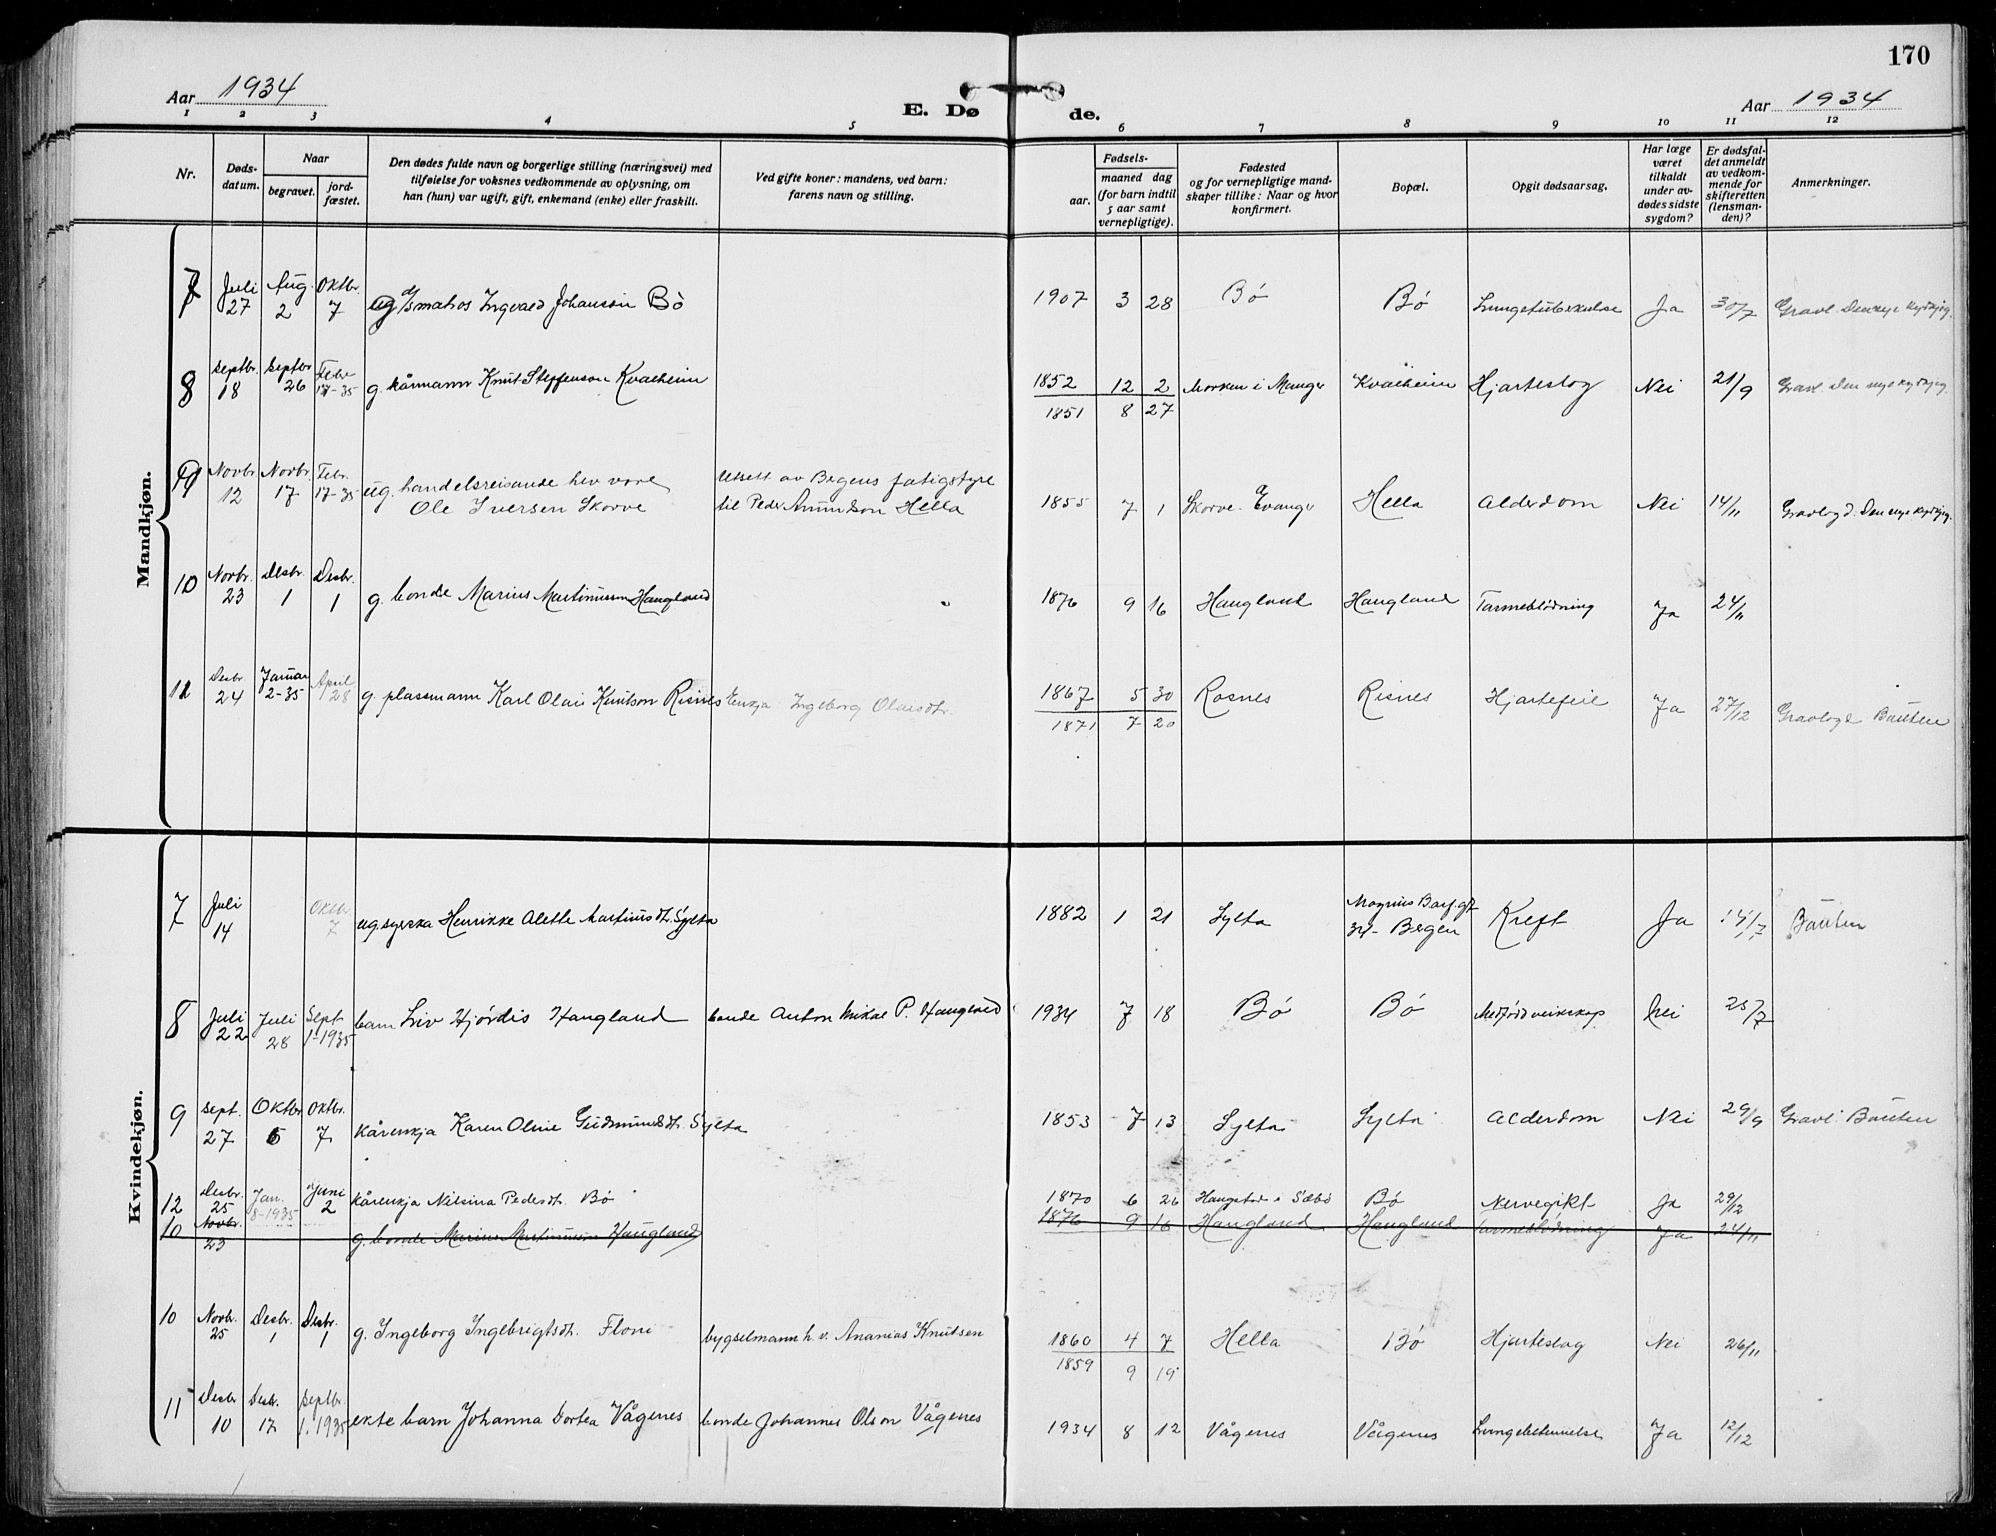 170
Aar 1934
E. Døde.
Aar 1934
1 2 3 4 5 6 7 8 9 10 11 12
Nr.
Døds-
datum.
Naar
begravet.
jord-
fæstet.
Den dødes fulde navn og borgerlige stilling (næringsvei) med
tilføielse for voksnes vedkommende av oplysning, om
han (hun) var ugift, gift, enkemand (enke) eller fraskilt.
Ved gifte koner: mandens, ved barn:
farens navn og stilling.
Fødsels-
aar.
maaned dag
(for barn indtil
5 aar samt
vernepligtige).
Fødested
og for vernepligtige mand-
skaper tillike: Naar og hvor
konfirmert.
Bopæl.
Opgit dødsaarsag.
Har læge
været
tilkaldt
under av-
dødes sidste
sygdom?
Er dødsfal-
det anmeldt
av vedkom-
mende for
skifteretten
(lensman-
den)?
Anmerkninger.
Mandkjøn.
7 Juli 27 Aug. 2 Oktbr. 7 ug Ingvald Johansson Bö 1907 3 28 Bö Bö Lungetuberkulose Ja 30/7
8 Septbr. 18 Septbr. 26 Febr. 17-35 g. kårmann Knut Steffenson Kvalheim 1852 12 2 Morken i Manger Kvalheim Hjarteslag Nei 21/9
1851 8 27
9 Novbr. 12 Novbr. 17 Febr. 17-35 ug. handelsreisande hev vore Utsett av Bergens fatigstyre
Ole Iversen Skorve til Peder Amundson Hella 1855 7 1 Skorve. Evanger Hella Alderdom Nei 14/11
10 Novbr. 23 Desbr. 1 Desbr. 1 g. bonde Marius Martinusson Haugland 1876 9 16 Haugland Haugland Tarmeblödning Ja 24/11
11 Desbr. 24 Januar 2-35 April 28 g. plassmann Karl Olai Knutson Risnes Enkja Ingeborg Olaisdtr. 1867 5 30 Rosnes Risnes Hjartefeil Ja 27/12 Bauten
1871 7 20
Kvindekjøn.
7 Juli 14 Oktbr. 7 ug syerska Henrikke Alette Martinusdtr. Sylta 1882 1 21 Sylta Magnus Barf. gt
34- Bergen Kreft Ja 14/7 Bauten
8 Juli 22 Juli 28 Sept. 1-1935 barn Liv Hjördis Haugland bonde Anton Mikal P. Haugland 1934 7 18 Bö Bö Medfödd veikskap Nei 25/7
9 Sept. 27 Oktbr 5 Oktbr. 7 kårenkja Karen Oline Gudmundsdtr. Sylta 1853 7 13 Sylta Sylta Alderdom Nei 29/9 Gravl. Bauten
12 Desbr. 25 Jan. 8-1935 Juni 2 kårenkja Nilsina Pedersdtr. Bö 1870 6 26 Bö Nervegikt Ja 29/12
10 Novbr. 23 g. bonde Marius Martinusson Haugland 1876 9 16 Haugland Haugland Tarmeblödning Ja 24/11
10 Novbr. 25 Desbr. 1 Desbr. 1 g. Ingeborg Ingebrigtsdtr. Floni bygselmann h. v. Ananias Knutsen 1860 4 7 Hella Bö Hjarteslag Nei 26/11
1859 9 19
11 Desbr 10 Desbr. 17 Septbr. 1.1935 ekte barn Johanna Dortea Vågenes bonde Johannes Olson Vågenes 1934 8 12 Vågenes Vågenes Lungebetennelse Ja 12/12